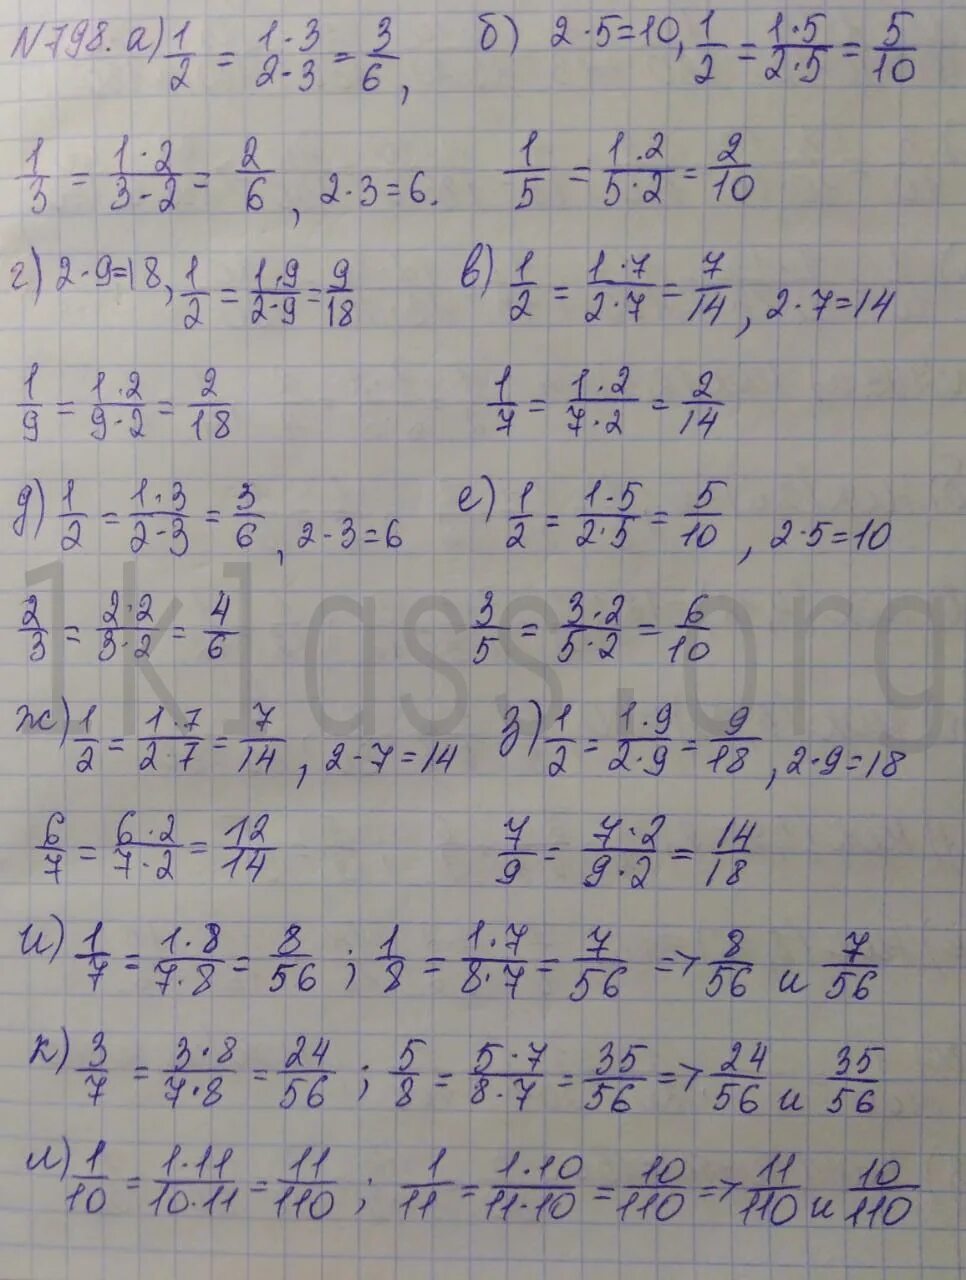 №798. а) 1/2 = 1·3/2·3 = 3/6, б) 2·5=10, 1/2 = 1·5/2·5 = 5/10
1/3 = 1·2/3·2 = 2/6, 2·3=6. 1/5 = 1·2/5·2 = 2/10
г) 2·9=18, 1/2 = 1·9/2·9 = 9/18 в) 1/2 = 1·7/2·7 = 7/14, 2·7=14
1/9 = 1·2/9·2 = 2/18 1/7 = 1·2/7·2 = 2/14
д) 1/2 = 1·3/2·3 = 3/6, 2·3=6 е) 1/2 = 1·5/2·5 = 5/10, 2·5=10
2/3 = 2·2/3·2 = 4/6 3/5 = 3·2/5·2 = 6/10
1klass.org
ж) 1/2 = 1·7/2·7 = 7/14, 2·7=14 з) 1/2 = 1·9/2·9 = 9/18, 2·9=18
6/7 = 6·2/7·2 = 12/14 7/9 = 7·2/9·2 = 14/18
и) 1/7 = 1·8/7·8 = 8/56; 1/8 = 1·7/8·7 = 7/56 => 8/56 и 7/56
к) 3/7 = 3·8/7·8 = 24/56; 5/8 = 5·7/8·7 = 35/56 => 24/56 и 35/56
л) 1/10 = 1·11/10·11 = 11/110; 1/11 = 1·10/11·10 = 10/110 => 11/110 и 10/110